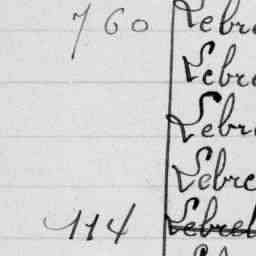 760 Lebre
Lebre
Lebre
Lebre
114 Lebrel